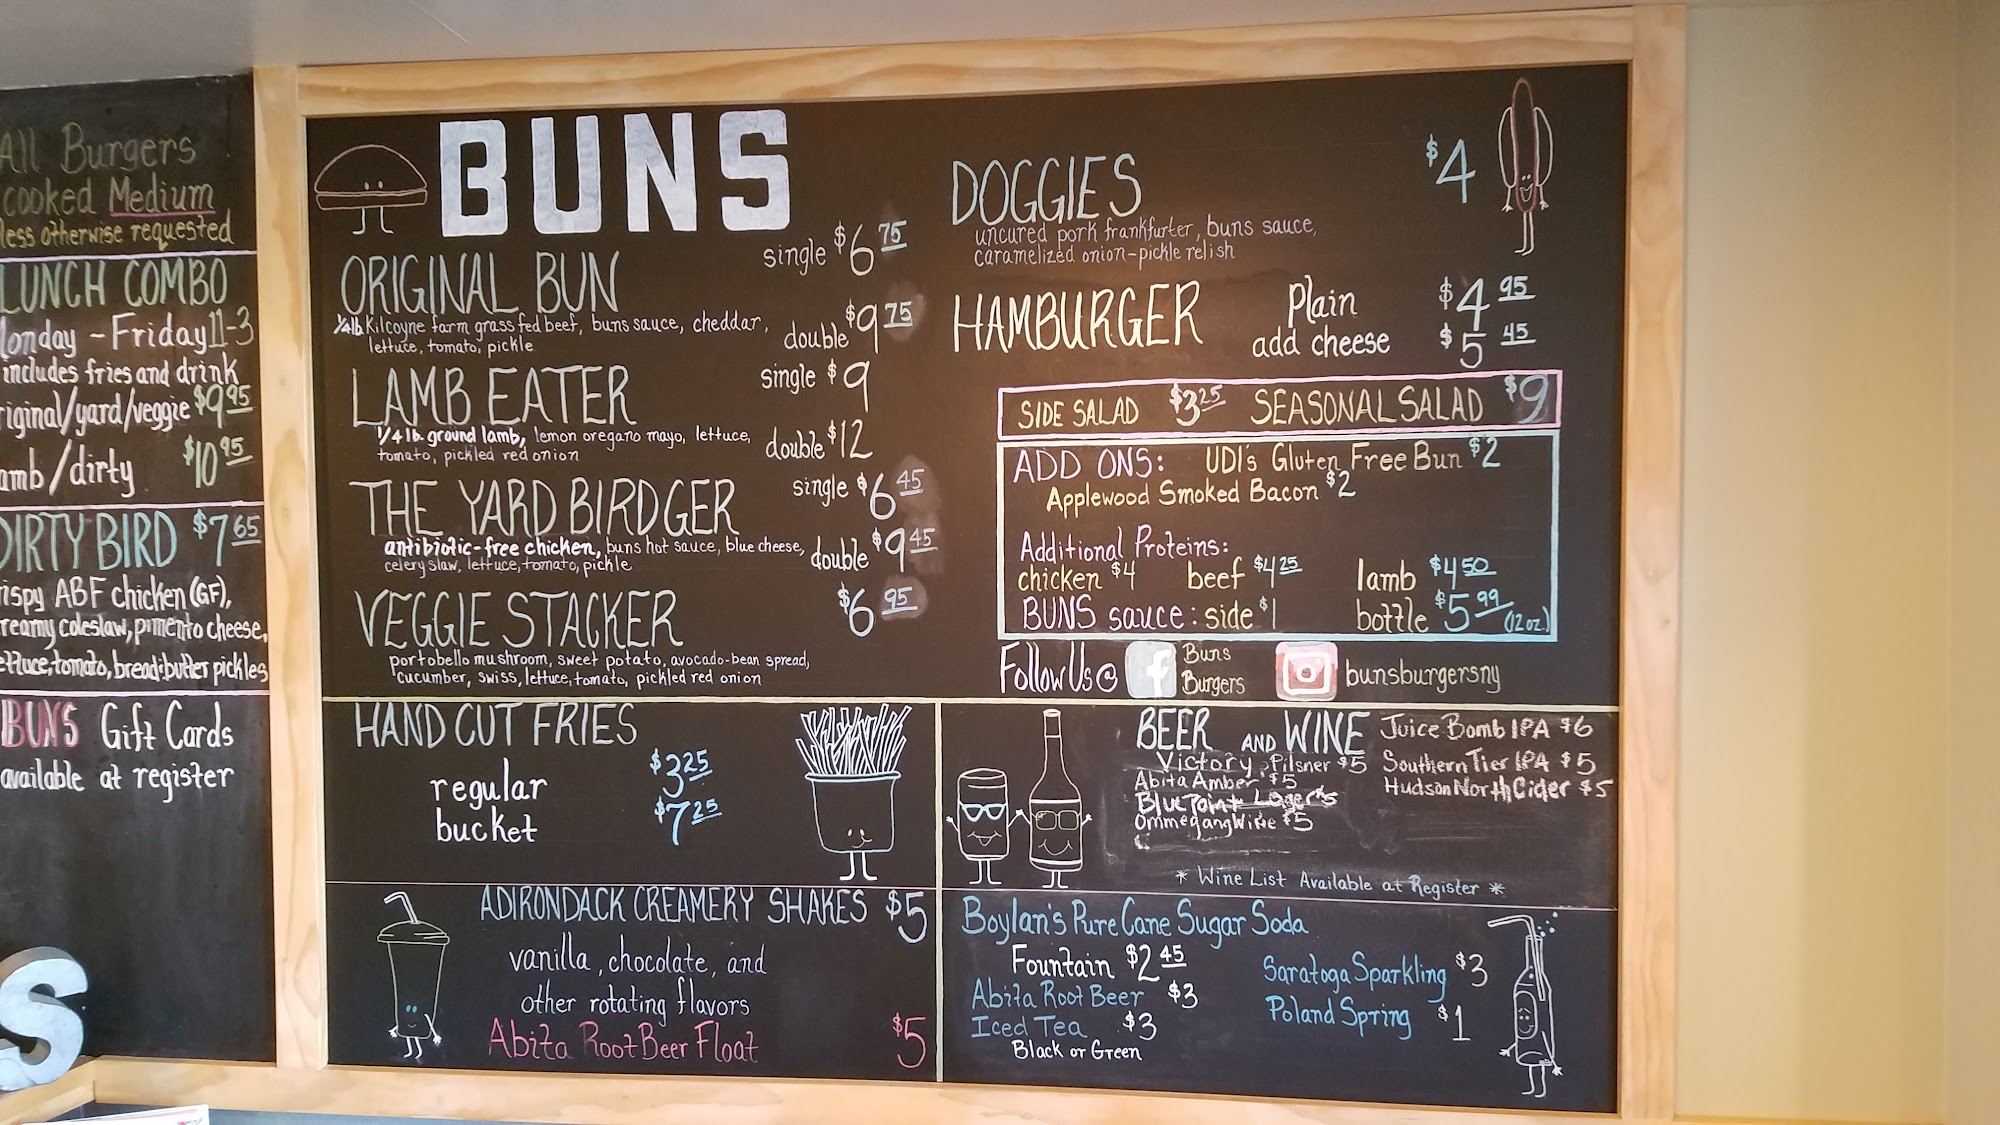 All Burgers
cooked Medium
less otherwise requested
LUNCH COMBO
Monday ~ Friday 11-3
includes fries and drink
riginal/yard/veggie $9.95
amb/dirty $10.95
DIRTY BIRD $7.65
rispy ABF chicken (GF),
reamy coleslaw, pimento cheese,
ettuce, tomato, bread & butter pickles
BUNS Gift Cards
available at register
S
BUNS
ORIGINAL BUN single $6.75
1/4 lb Kilcoyne farm grass fed beef, buns sauce, cheddar, double $9.75
lettuce, tomato, pickle
LAMB EATER single $9
1/4 lb ground lamb, lemon oregano mayo, lettuce, double $12
tomato, pickled red onion
THE YARD BIRDGER single $6.45
antibiotic-free chicken, buns hot sauce, blue cheese, double $9.45
celery slaw, lettuce, tomato, pickle
VEGGIE STACKER $6.95
portobello mushroom, sweet potato, avocado-bean spread,
cucumber, swiss, lettuce, tomato, pickled red onion
DOGGIES $4
uncured pork frankfurter, buns sauce,
caramelized onion-pickle relish
HAMBURGER Plain $4.95
add cheese $5.45
SIDE SALAD $3.25 SEASONAL SALAD $9
ADD ONS: UDI's Gluten Free Bun $2
Applewood Smoked Bacon $2
Additional Proteins:
chicken $4 beef $4.25 lamb $4.50
BUNS sauce: side $1 bottle $5.99 (12oz.)
Follow Us @ f Buns Burgers bunsburgersny
HAND CUT FRIES
regular $3.25
bucket $7.25
BEER AND WINE
Victory Pilsner $5
Abita Amber $5
Blue Point Lager $5
Ommegang Witte $5
Juice Bomb IPA $6
Southern Tier IPA $5
Hudson North Cider $5
* Wine List Available at Register *
ADIRONDACK CREAMERY SHAKES $5
vanilla, chocolate, and
other rotating flavors
Abita Root Beer Float $5
Boylan's Pure Cane Sugar Soda
Fountain $2.45
Abita Root Beer $3
Iced Tea $3
Black or Green
Saratoga Sparkling $3
Poland Spring $1